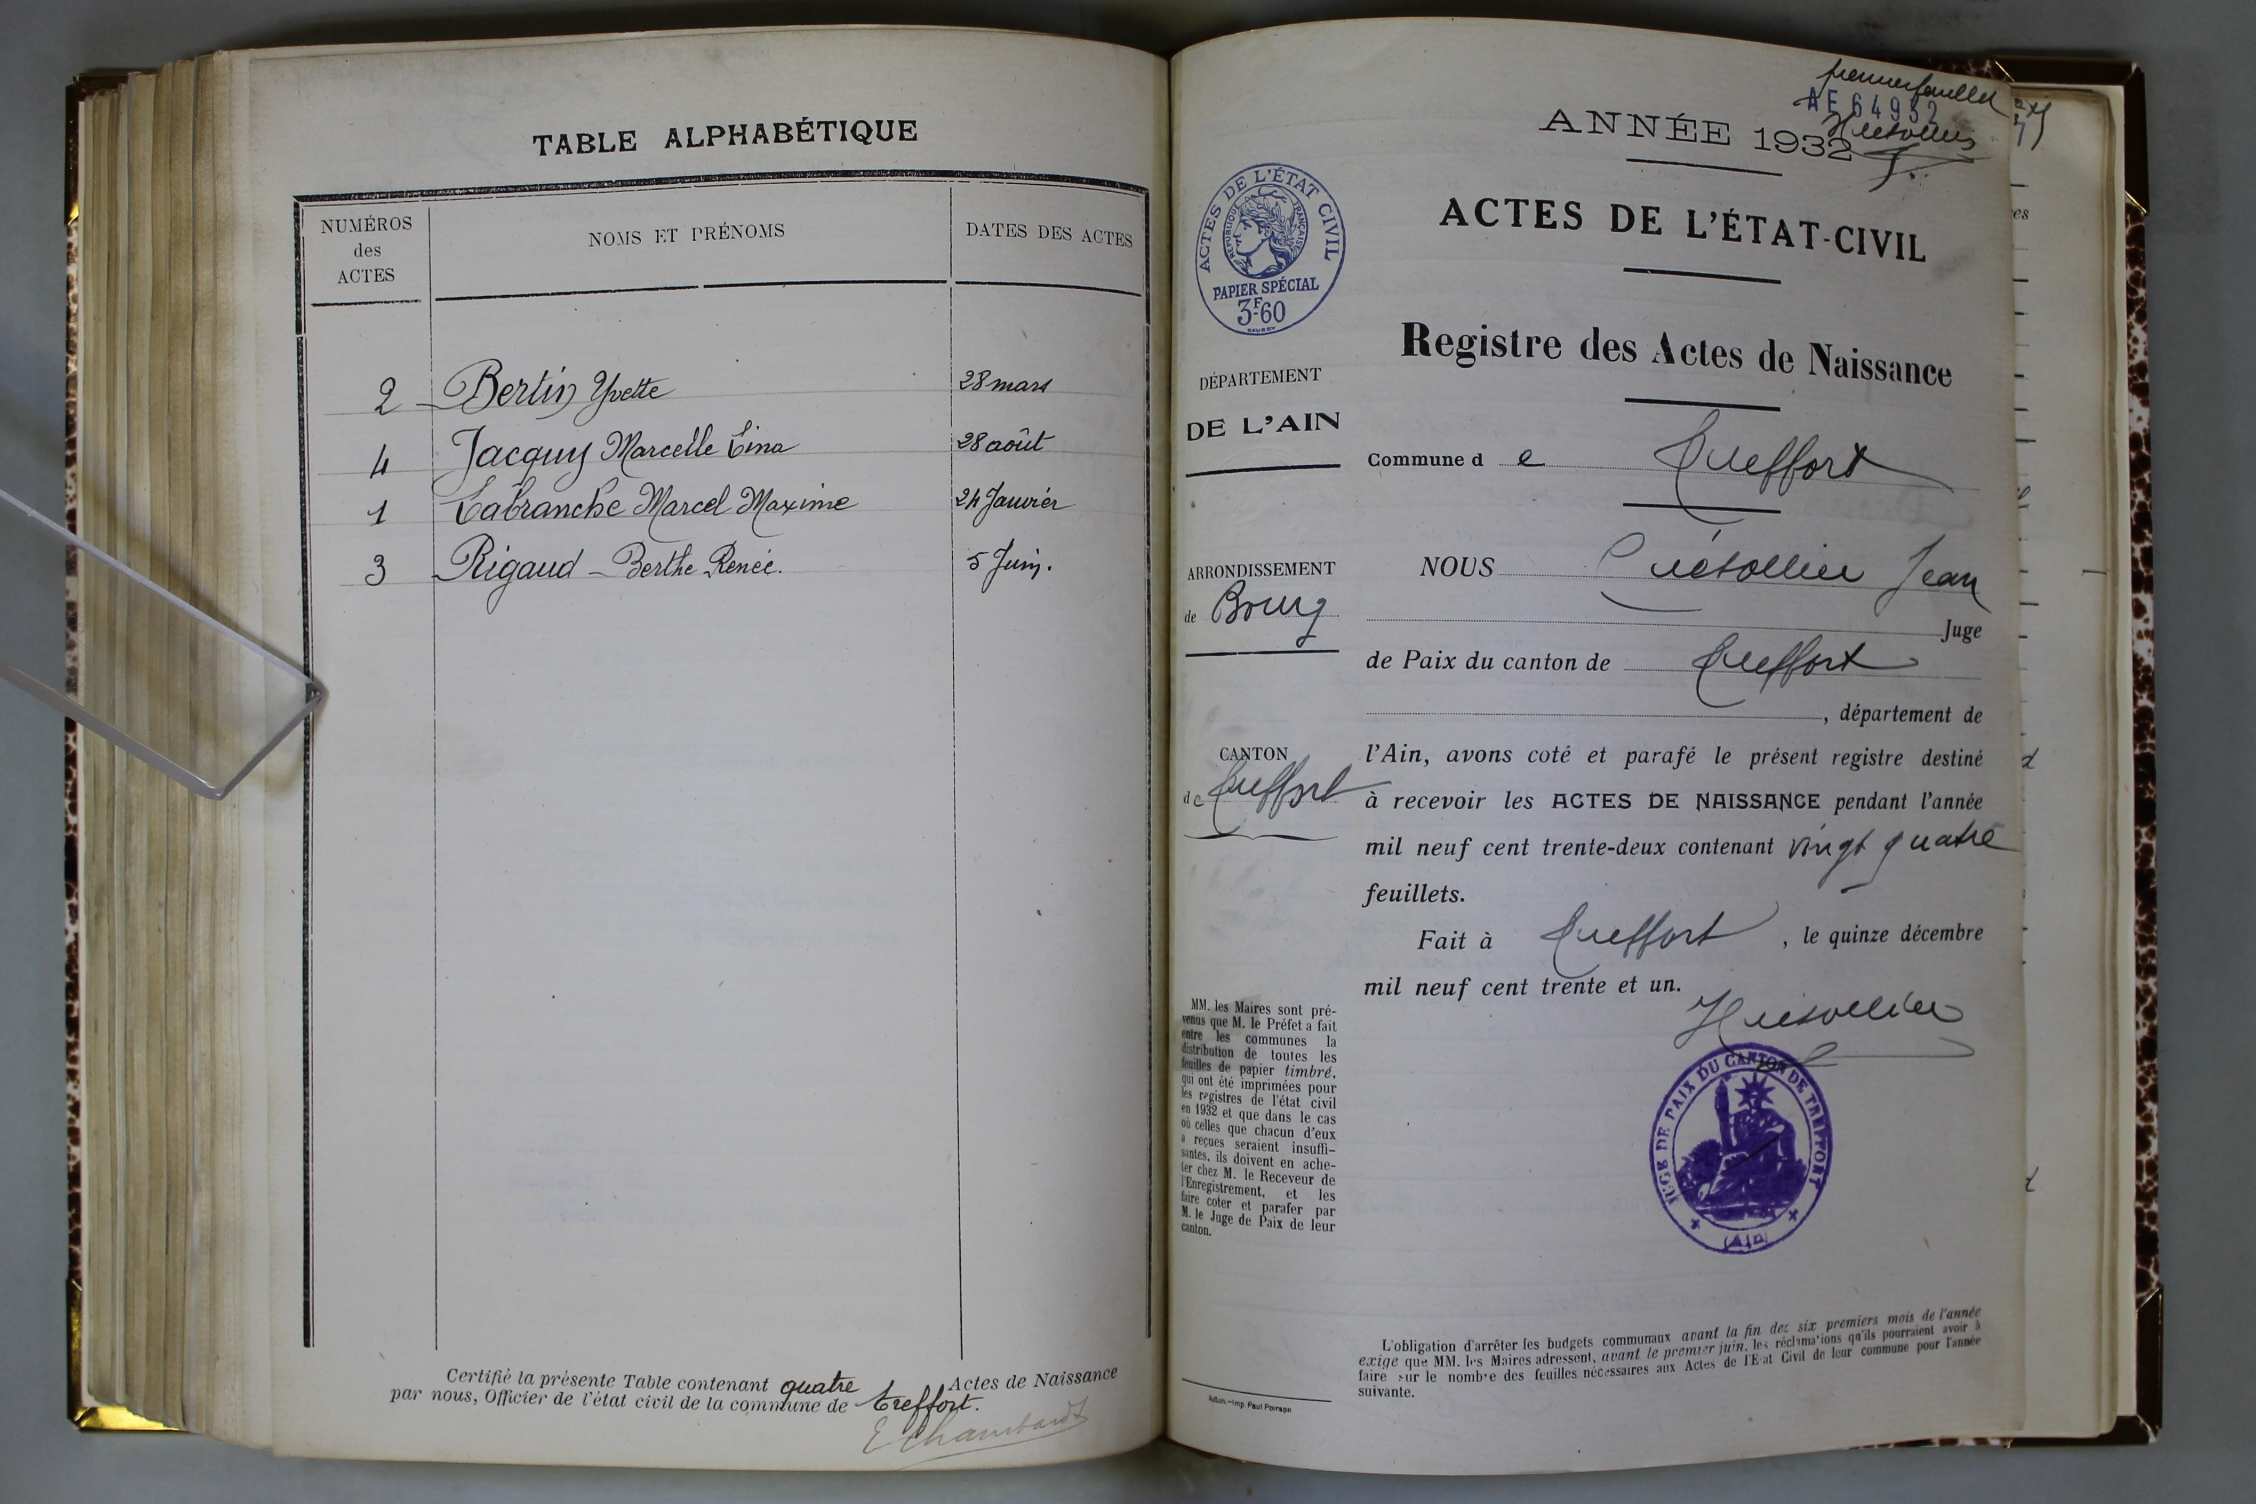 TABLE ALPHABÉTIQUE
NUMÉROS
des
ACTES
NOMS ET PRÉNOMS
DATES DES ACTES
2 Bertin Yvette 28 mars
4 Jacquy Marcelle Lina 28 août
1 Labranche Marcel Maxime 24 Janvier
3 Rigaud - Berthe Renée. 5 Juin.
Certifié la présente Table contenant quatre Actes de Naissance
par nous, Officier de l'état civil de la commune de treffort.
E Chambard
premier feuillet
AE 64952
ANNÉE 1932
ACTES DE L'ÉTAT CIVIL
RÉPUBLIQUE FRANÇAISE
PAPIER SPÉCIAL
3F.60
ACTES DE L'ÉTAT-CIVIL
Registre des Actes de Naissance
DÉPARTEMENT
DE L'AIN
Commune de Treffort
ARRONDISSEMENT
de Bourg
NOUS Jean
Juge
de Paix du canton de Treffort
, département de
CANTON
de Treffort
l'Ain, avons coté et parafé le présent registre destiné
à recevoir les ACTES DE NAISSANCE pendant l'année
mil neuf cent trente-deux contenant vingt quatre
feuillets.
Fait à Treffort, le quinze décembre
mil neuf cent trente et un.
MM. les Maires sont pré-
venus que M. le Préfet a fait
entre les communes la
distribution de toutes les
feuilles de papier timbré,
qui ont été imprimées pour
les registres de l'état civil
en 1932 et que dans le cas
où celles que chacun d'eux
a reçues seraient insuffi-
santes, ils doivent en ache-
ter chez M. le Receveur de
l'Enregistrement, et les
faire coter et parafer par
M. le Juge de Paix de leur
canton.
JUGE DE PAIX DU CANTON DE TREFFORT
(Ain)
L'obligation d'arrêter les budgets communaux avant la fin des six premiers mois de l'année
exige que MM. les Maires adressent, avant le premier juin, les réclamations qu'ils pourraient avoir à
faire sur le nombre des feuilles nécessaires aux Actes de l'Etat Civil de leur commune pour l'année
suivante.